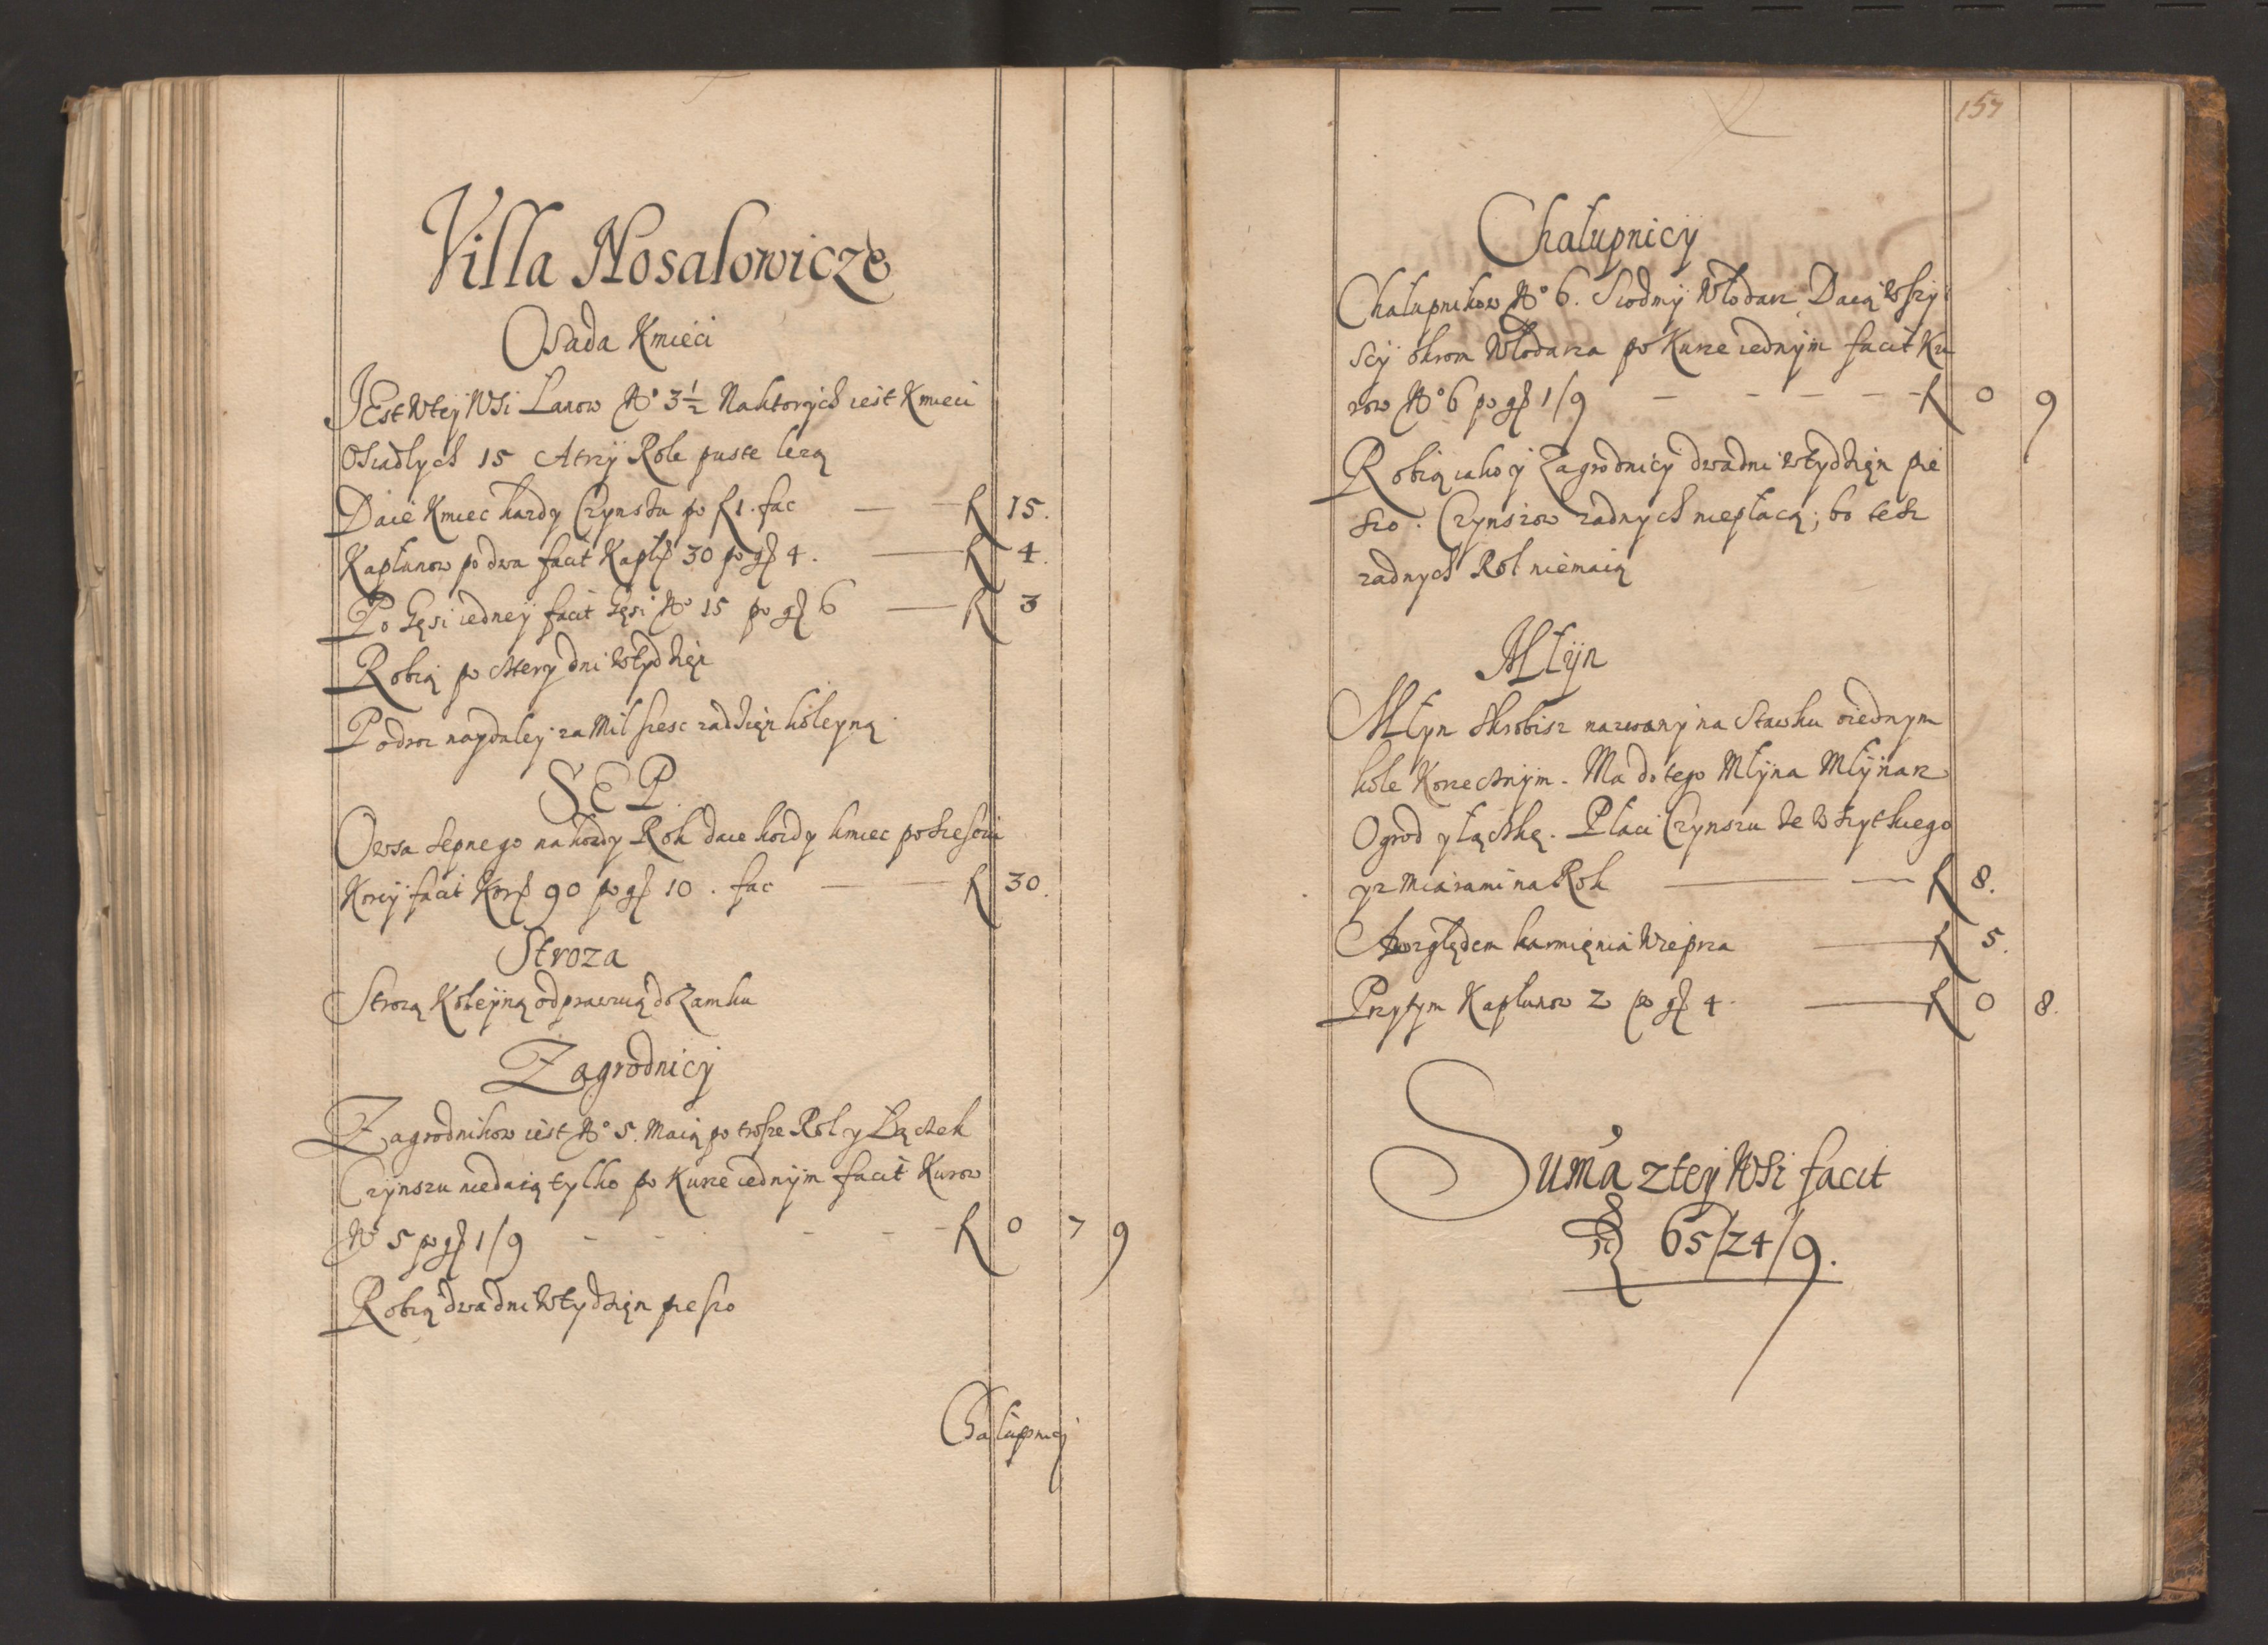 Villa Nosalowicze
Osada Kmieci
JEst wtey Wsi Lanow No 3½ Naktorych iest Kmieci
Osiadłych 15 Atrzy Role puste lezą
Daie Kmiec kazdy Czynszu po f 1. fac — — f 15.
Kapłunow po dwa facit Kapł 30 po gr 4. — f 4.
Po Gęsi iedney facit Gęsi No 15 po gr 6 — f 3
Robią po cztery dni wtydzięn
Podroz naydaley za Mil szesc zadzięn koleyną
SEP.
Owsa sepnego na kozdy Rok daie kozdy kmiec poszesciu
Korcy facit Kor 90 po gr 10. fac — — f 30.
Stroza
Strozą Koleyną odprawuią do Zamku
Zagrodnicy
Zagrodnikow iest No 5. Maią po trosze Rol y Łączek
Czynszu niedaią tylko po Kurze iednym facit Kurow
No 5 po gr 1/9 - - - - - f 0 7 9
Robią dwa dni wtydzięn pieszo
Chałupnicy
157
Chałupnicy
Chałupnikow No 6. Siodmy Włodarz, Daią wszy
scy okrom Włodarza po Kurze iednym facit Ku
row No 6 po gr 1/9 - - - - - f 0 9
Robią iako y Zagrodnicy dwadni wtydzięn pie
szo. Czynszow zadnych niepłacą; bo tesz
zadnych Rol niemaią
Młyn
Młyn Skrobisz nazwany na Stawku oiednym
kole Korzecznym. Ma do tego Młyna Młynarz
Ogrod y Łączkę. Płaci Czynszu ze wszytkiego
yz Miarami na Rok — — f 8.
Awzględem karmięnia Wieprza — f 5.
Przytym Kapłunow 2 po gr 4. — f 0 8.
Suma ztey Wsi facit
f 65/24/9.